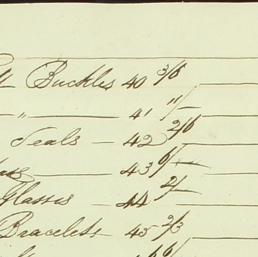 Buckles 40 3/6
" — 41 11/
Seals — 42 2/6
— 43 6/
Glasses — 44 2/
Bracelets — 45 2/3